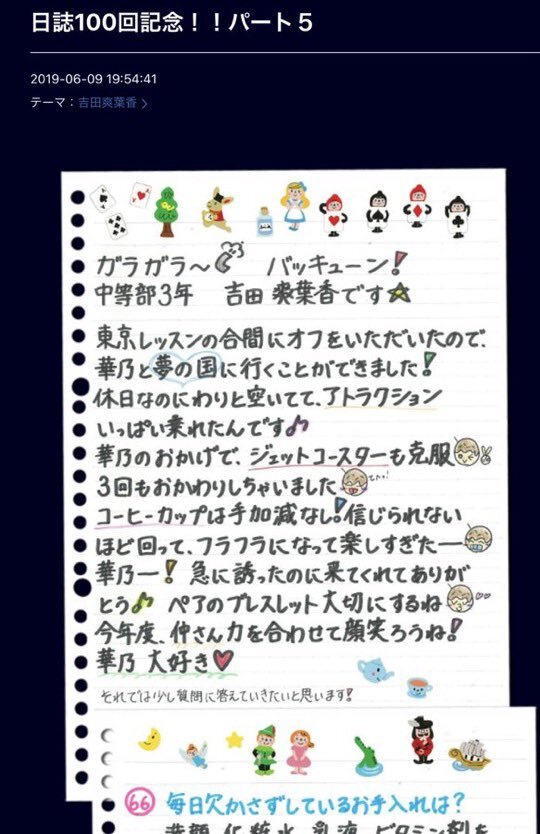 日誌100回記念！！パート５
2019-06-09 19:54:41
テーマ：吉田爽葉香
ガラガラ〜 バッキューン！
中等部3年 吉田 爽葉香です☆
東京レッスンの合間にオフをいただいたので、
華乃と夢の国に行くことができました！
休日なのにわりと空いてて、アトラクション
いっぱい乗れたんです♪
華乃のおかげで、ジェットコースターも克服
3回もおかわりしちゃいました
コーヒーカップは手加減なし！信じられない
ほど回って、フラフラになって楽しすぎたー
華乃ー！ 急に誘ったのに来てくれてありが
とう♪ ペアのブレスレット大切にするね
今年度、仲さん力を合わせて顔笑ろうね！
華乃 大好き♥
それでは少し質問に答えていきたいと思います！
66 毎日欠かさずしているお手入れは？
洗顔、化粧水、乳液、ビタミン剤を